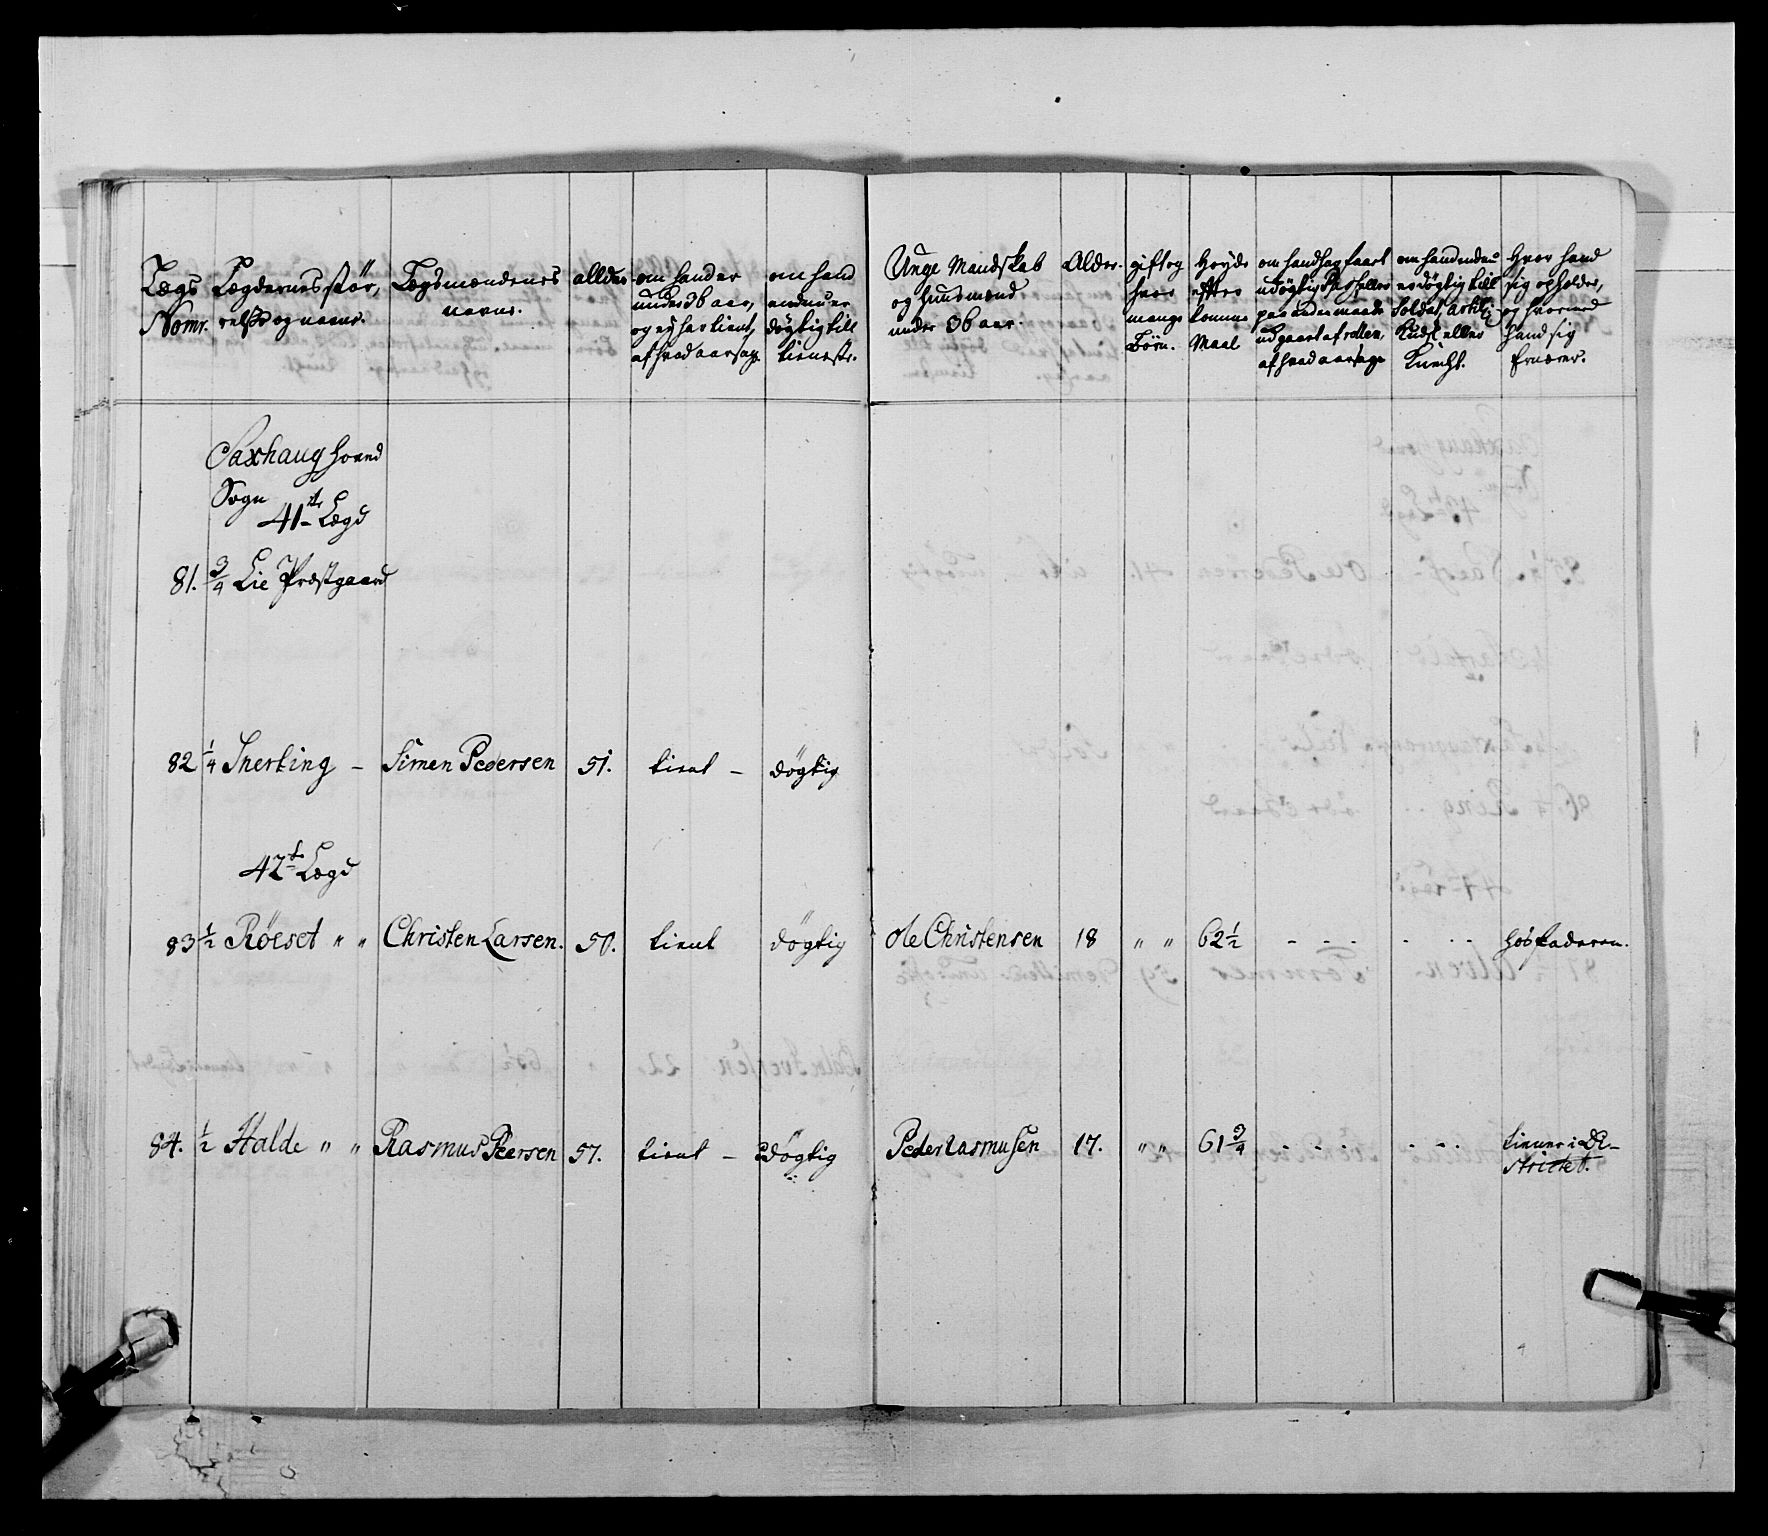 Lægs Nomr.
Lægdernes stør, relse og navne.
Lægsmændenes navne.
alder
om hand er under 36 aar, og ey har tient, af hvad aarsag.
om hand endnu er døgtig till tieneste.
Unge Mandskab og huusmænd under 36 aar.
Alder.
gift og hvor mange Børn.
Høyde efter komme Maal
om hand har faaet udøgtig Pas heller paa anden maade udgaaet af rollen, af hvad aarsage
om hand endnu er døgtig till Soldat, Artl: Kudsk eller Knecht.
hvor hand sig opholder, og hvormed hand sig Ernærer.
Saxhaug hoved
Sogn
41te Lægd
81. 3/4 Lie Præstgaard
82 1/4 Sherting – Simen Pedersen 51. tient – døgtig
42de Lægd
83 1/2 Røeset " " Christen Larsen. 50. tient døgtig Ole Christensen 18 " " 62 1/2 - - - - - - hos faderen.
84. 1/2 Halde " " Rasmus Peersen 57. tient – døgtig Peder Rasmusen 17. " " 61 3/4 - - - - - - tiener i Di-
strictet.